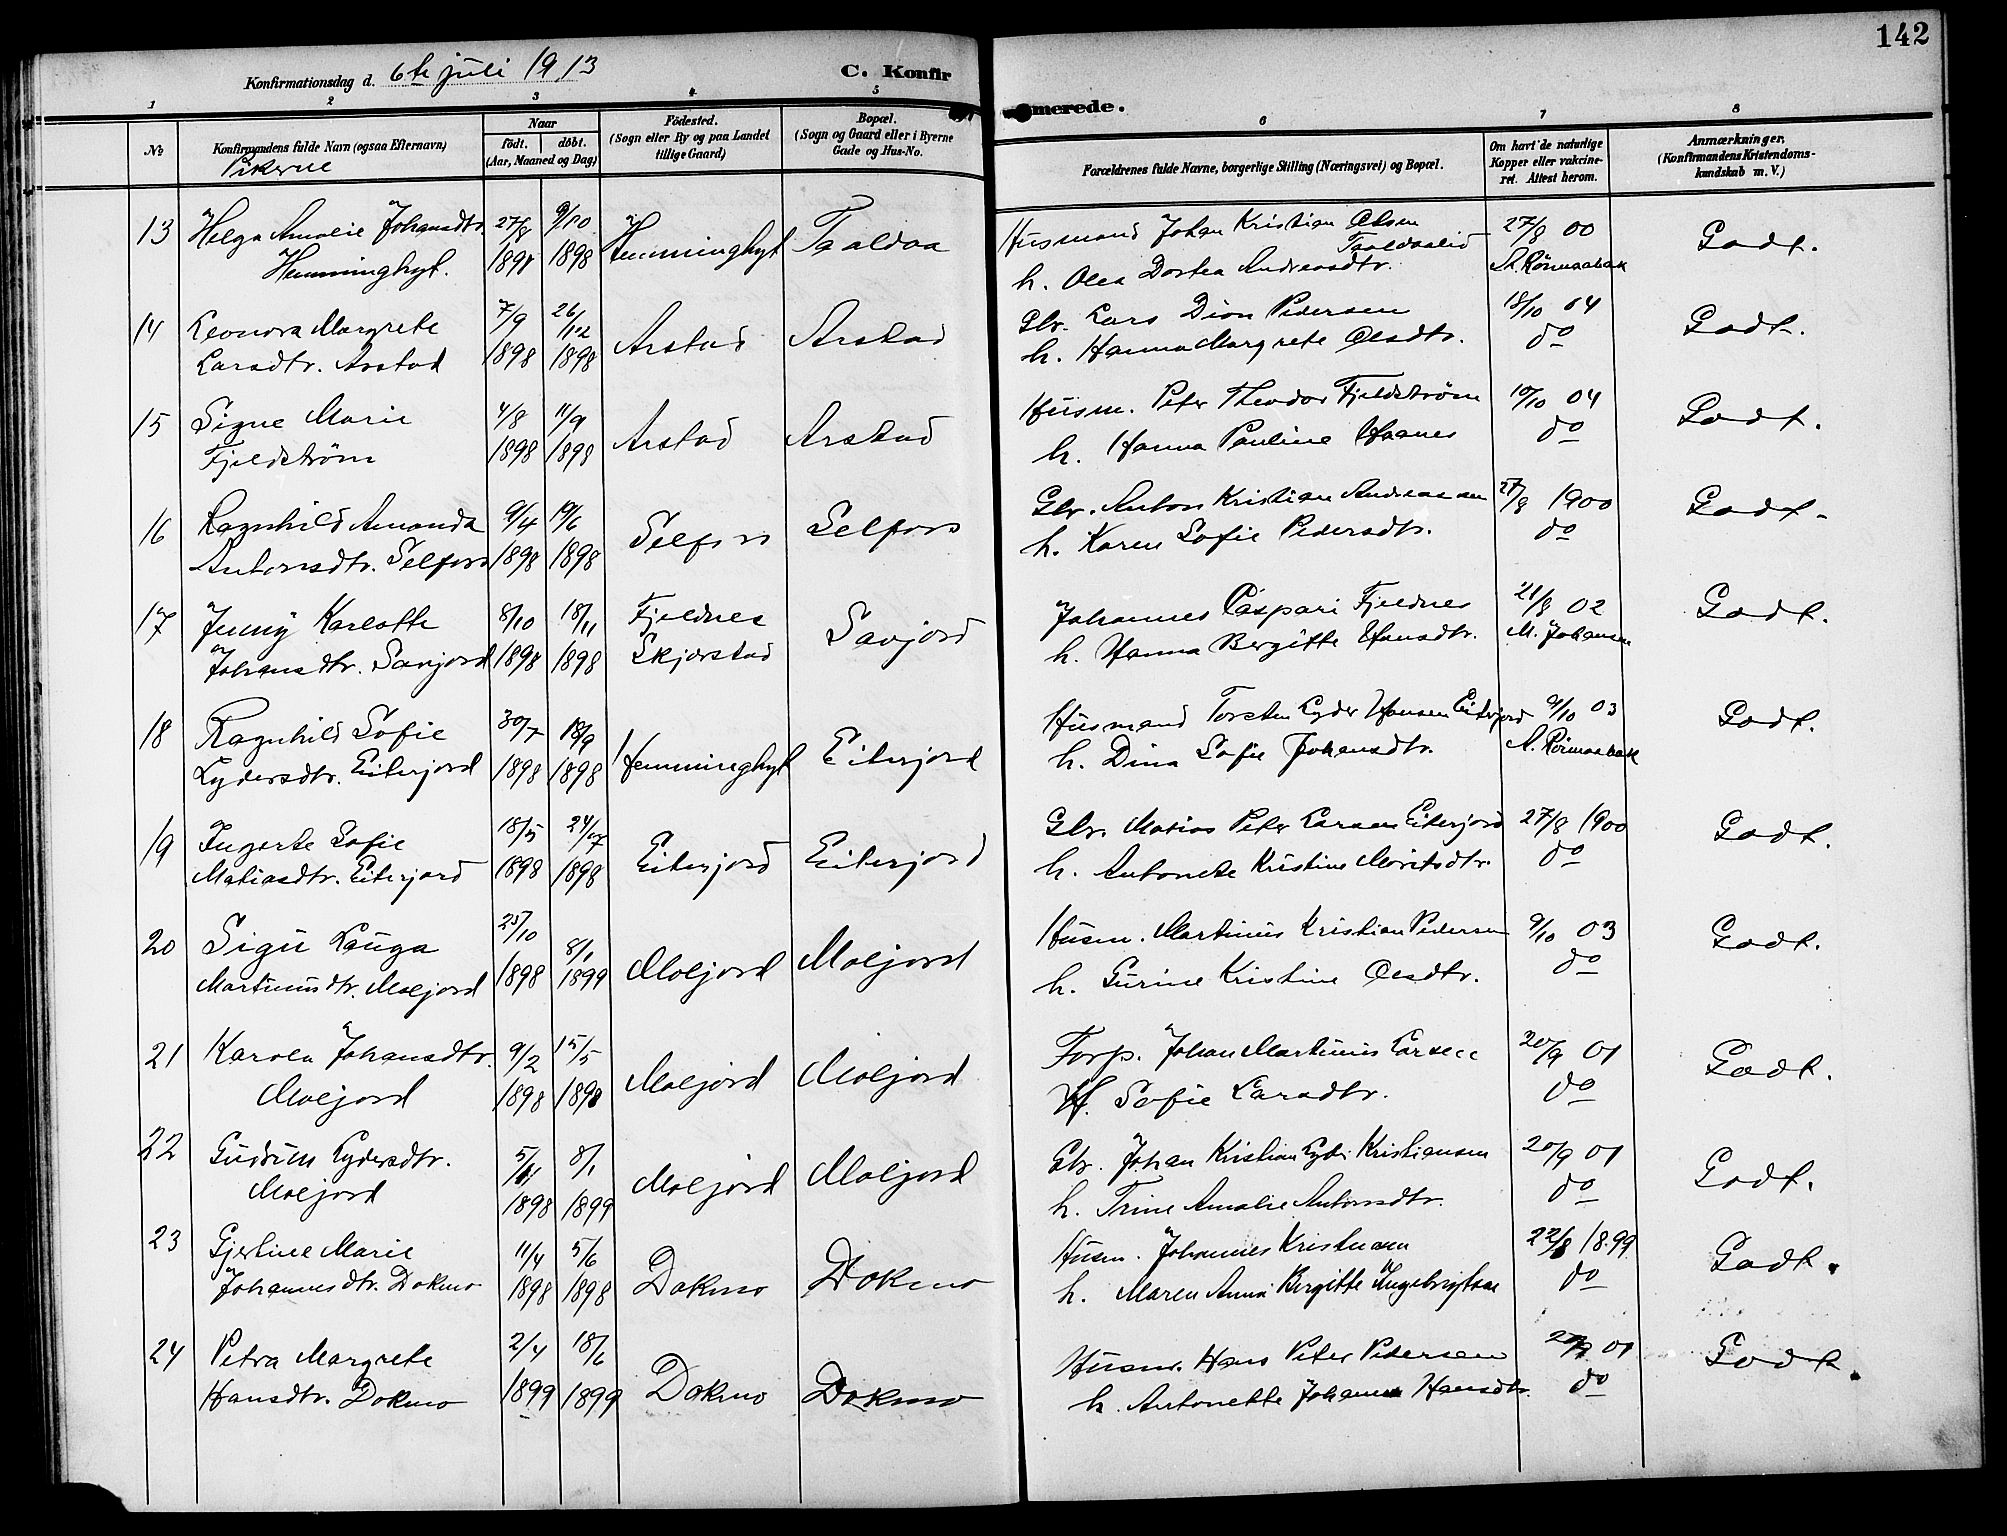 142
Konfirmationsdag d. 6te juli 1913
C. Konfirmerede.
1 2 3 4 5 6 7 8
No
Konfirmandens fulde Navn (ogsaa Efternavn)
Pikerne
Naar
födt. döbt.
(Aar, Maaned og Dag)
Födested.
(Sogn eller By og paa Landet
tillige Gaard)
Bopæl.
(Sogn og Gaard eller i Byerne
Gade og Hus-No.
Forældrenes fulde Navne, borgerlige Stilling (Næringsvei) og Bopæl.
Om havt de naturlige
Kopper eller vakcine-
ret. Attest herom.
Anmærkninger.
(Konfirmandens Kristendoms-
kundskab m. V.)
13 Helga Amalie Johansdtr. 27/8 9/10 Hemminghyt Taaldaa Husmand Johan Kristian Olsen Taaldaalid 27/8 00 Godt.
Hemminghyt. 1898 1898 h. Olea Dortea Andreasdtr. A. Rönmaabak
14 Leonora Margrete 7/9 26/12 Arstad Arstad Gbr. Lars Dion Pedersen 18/10 04 Godt.
Larsdtr. Arstad 1898 1898 h. Hanna Margrete Olsdtr. do
15 Signe Marie 4/8 11/9 Arstad Arstad Husm. Peter Theodor Fjeldström 10/10 04 Godt.
Fjeldström 1898 1898 h. Hanna Pauline Haanes do
16 Ragnhild Amanda 9/4 19/6 Selfors Selfors Gbr. Anton Kristian Andreassen 27/8 1900 Godt.
Antonsdtr. Selfors 1898 1898 h. Karen Sofie Pedersdtr. do
17 Jenny Karlotte 8/10 18/11 Fjeldnes Savjord Johannes Caspari Fjeldnes 21/8 02 Godt.
Johansdtr. Savjord 1898 1898 Skjerstad h. Hanna Bergitte Hansdtr. M. Johansen
18 Ragnhild Sofie 30/7 18/9 Hemminghyt Eiterjord Husmand Torsten Lyder Hansen Eiterjord 9/10 03 Godt.
Lydersdtr. Eiterjord 1898 1898 h. Dina Sofie Johansdtr. A. Rönmaabak
19 Ingerte Sofie 18/5 24/7 Eiterjord Eiterjord Gbr. Matias Peter Larsen Eiterjord 27/8 1900 Godt.
Matiasdtr. Eiterjord 1898 1898 h. Antonette Kristine Moritsdtr. do
20 Sigu Lauga 25/10 8/1 Moljord Moljord Husm. Martinus Kristian Pedersen 9/10 03 Godt.
Martinusdtr. Moljord 1898 1899 h. Gurine Kristine Olsdtr. do
21 Karola Johansdtr. 9/2 15/5 Moljord Moljord Forp. Johan Martinus Larsen 20/9 01 Godt.
Moljord 1898 1898 H. Sofie Larsdtr. do
22 Gudrun Lydersdtr. 5/11 8/1 Moljord Moljord Gbr. Johan Kristian Lyder Kristiansen 20/9 01 Godt.
Moljord 1898 1899 h. Trine Amalie Antonsdtr. do
23 Gjertine Marie 11/4 5/6 Dokmo Dokmo Husm. Johannes Kristensen 22/8 1899 Godt.
Johannesdtr. Dokmo 1898 1898 h. Maren Anna Bergitte Ingebrigtsen do
24 Petra Margrete 2/4 18/6 Dokmo Dokmo Husm. Hans Peter Pedersen 20/9 01 Godt.
Hansdtr. Dokmo 1899 1899 h. Antonette Johanna Hansdtr. do